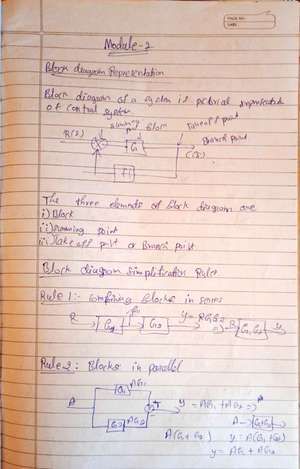 PAGE NO.
DATE:
Module-2
Block diagram Representation
Block diagram of a system is pictorial representation
of control system
summing Block Takeoff point
R(s) G Branch point
C(s)
H
The three elements of block diagram are
i) Block
ii) Summing point
iii) Take off point or Branch point
Block diagram simplification Rules
Rule 1:- Combining blocks in series
R G1 RG1 G2 y = RG1G2 => R G1G2 y
Rule 2: Blocks in parallel
G1 AG1
A y = AG1 + AG2 => A
G2 AG2 A G1+G2
A(G1 + G2) y = A(G1+G2)
y = AG1 + AG2